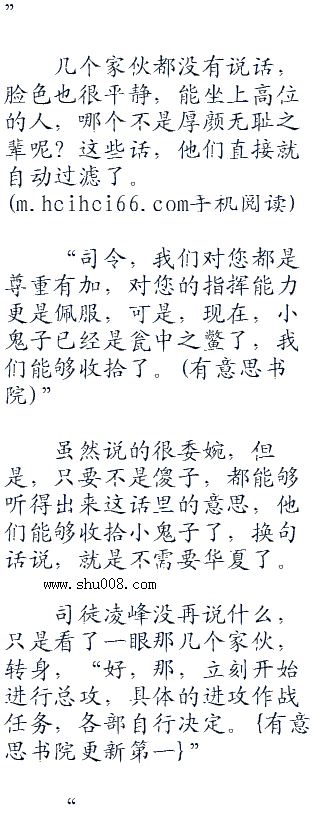 ”
几个家伙都没有说话，
脸色也很平静，能坐上高位
的人，哪个不是厚颜无耻之
辈呢？这些话，他们直接就
自动过滤了。
(m.hcihci66.com手机阅读)
“司令，我们对您都是
尊重有加，对您的指挥能力
更是佩服，可是，现在，小
鬼子已经是瓮中之鳖了，我
们能够收拾了。(有意思书
院)”
虽然说的很委婉，但
是，只要不是傻子，都能够
听得出来这话里的意思，他
们能够收拾小鬼子了，换句
话说，就是不需要华夏了。
www.shu008.com
司徒凌峰没再说什么，
只是看了一眼那几个家伙，
转身，“好，那，立刻开始
进行总攻，具体的进攻作战
任务，各部自行决定。{有意
思书院更新第一}”
“